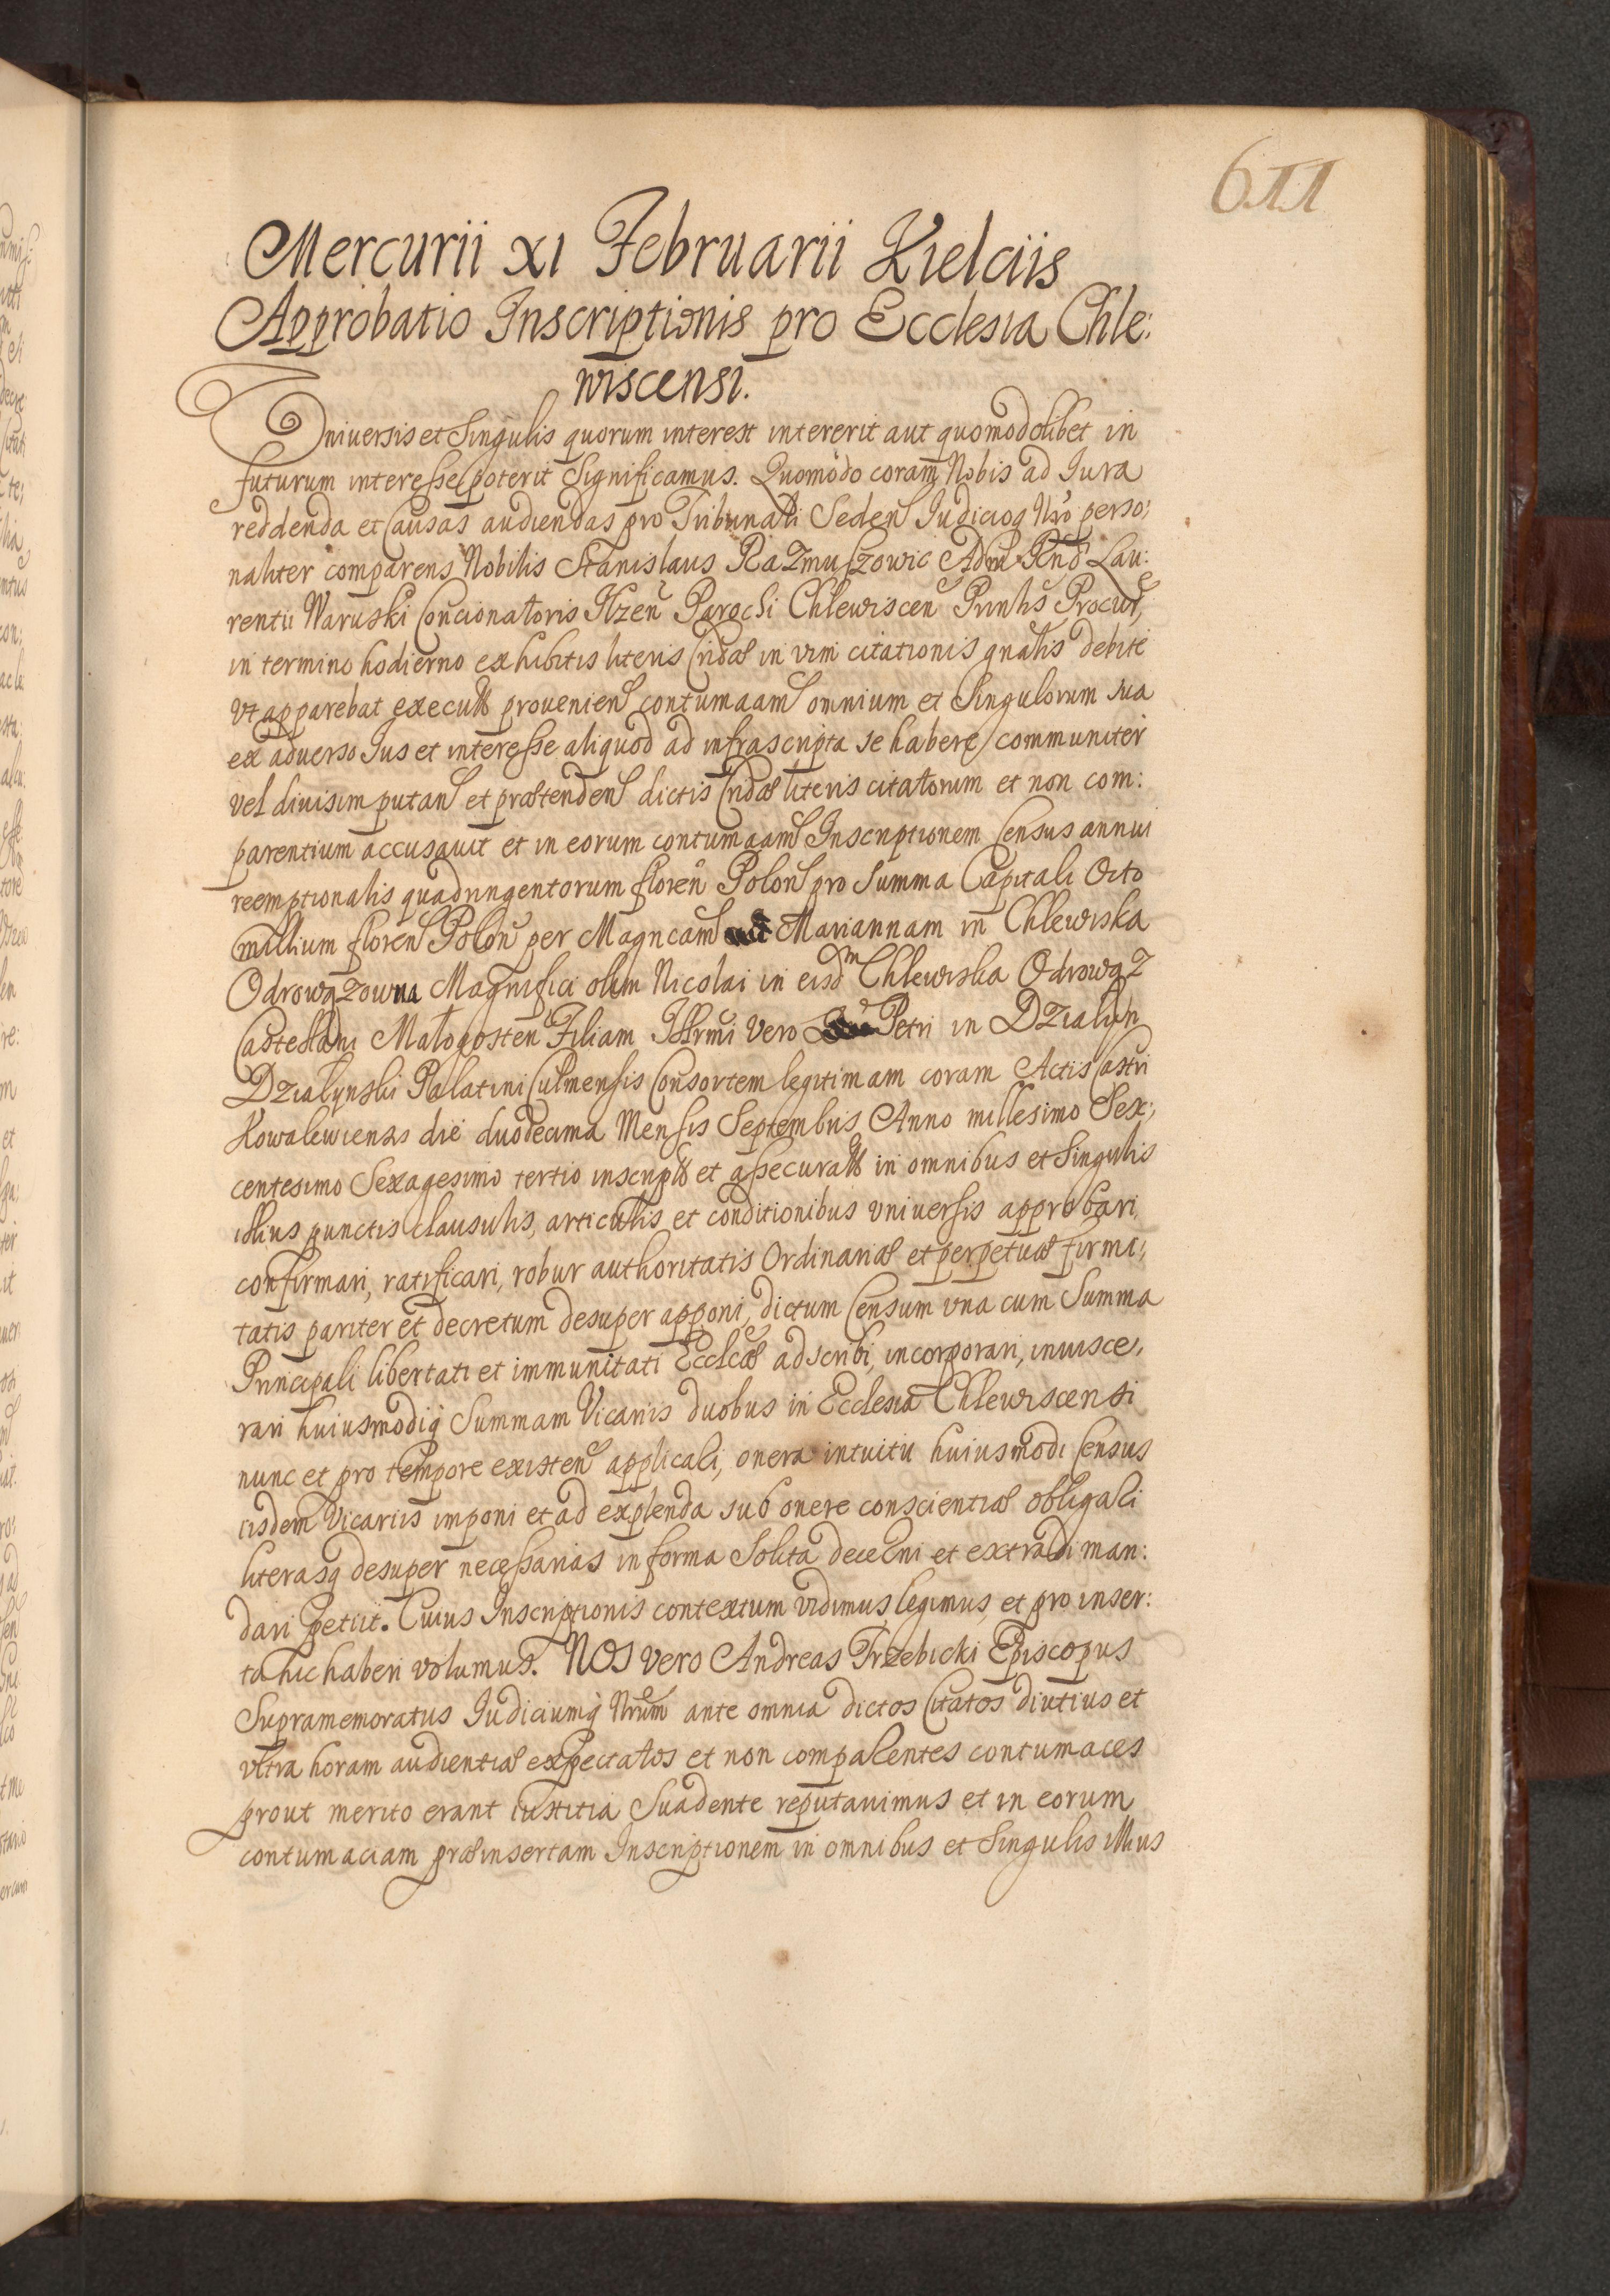 611
Mercurii XI Februarii Kielciis
Approbatio Inscriptionis pro Ecclesia Chle:
wiscensi.
Vniuersis et Singulis quorum interest intererit aut quomodolibet in
futurum interesse poterit Significamus. Quomodo coram Nobis ad Jura
reddenda et Causas audiendas pro Tribunali Seden Judicioq Nro perso:
naliter comparens Nobilis Stanislaus Razmuszowic Adm Rnd Lau:
rentii Waruski Concionatoris Ilzen Parochi Chlewiscen Prnlis Procur,
in termino hodierno exhibitis literis Cridæ in vim citationis gnalis debite
vt apparebat execut provenien contumaciam omnium et Singulorum sua
ex aduerso Jus et interesse aliquod ad infrascripta se habere communiter
vel diuisim putan et prætenden dictis Cridæ literis citatorum et non com:
parentium accusauit et in eorum contumaciam Inscriptionem Census annui
reemptionalis quadringentorum floren Polon pro Summa Capitali Octo
millium floren Polon per Magncam Mariannam in Chlewiska
Odrowązowna Magnifici olim Nicolai in eisdm Chlewiska Odrowąz
Castellani Małogosten Filiam Illrmi vero Petri in Dzialyn
Dzialynski Pallatini Culmensis Consortem legitimam coram Actis Castri
Kowalewiensis die duodecima Mensis Septembris Anno millesimo Sex:
centesimo Sexagesimo tertio inscript et assecurat in omnibus et Singulis
illius punctis clausulis, articulis et conditionibus vniuersis approbari,
confirmari, ratificari, robur authoritatis Ordinariæ et perpetuæ firmi:
tatis pariter et decretum desuper apponi, dictum Censum vna cum Summa
Principali libertati et immunitati Ecclcæ adscribi, incorporari, inuisce:
rari huiusmodiq Summam Vicariis duobus in Ecclesia Chlewiscensi
nunc et pro tempore existen applicari, onera intuitu huiusmodi Census
iisdem Vicariis imponi et ad explenda sub onere conscientiæ obligari
literasq desuper necessarias in forma Solita decerni et extradi man:
dari petiit. Cuius Inscriptionis contextum vidimus, legimus et pro inser:
ta hic haberi volumus. NOS vero Andreas Trzebicki Episcopus
Supramemoratus Judiciumq Nrum ante omnia dictos Citatos diutius et
vltra horam audientiæ expectatos et non comparentes contumaces
prout merito erant iustitia Suadente reputauimus et in eorum
contumaciam præinsertam Inscriptionem in omnibus et Singulis illius